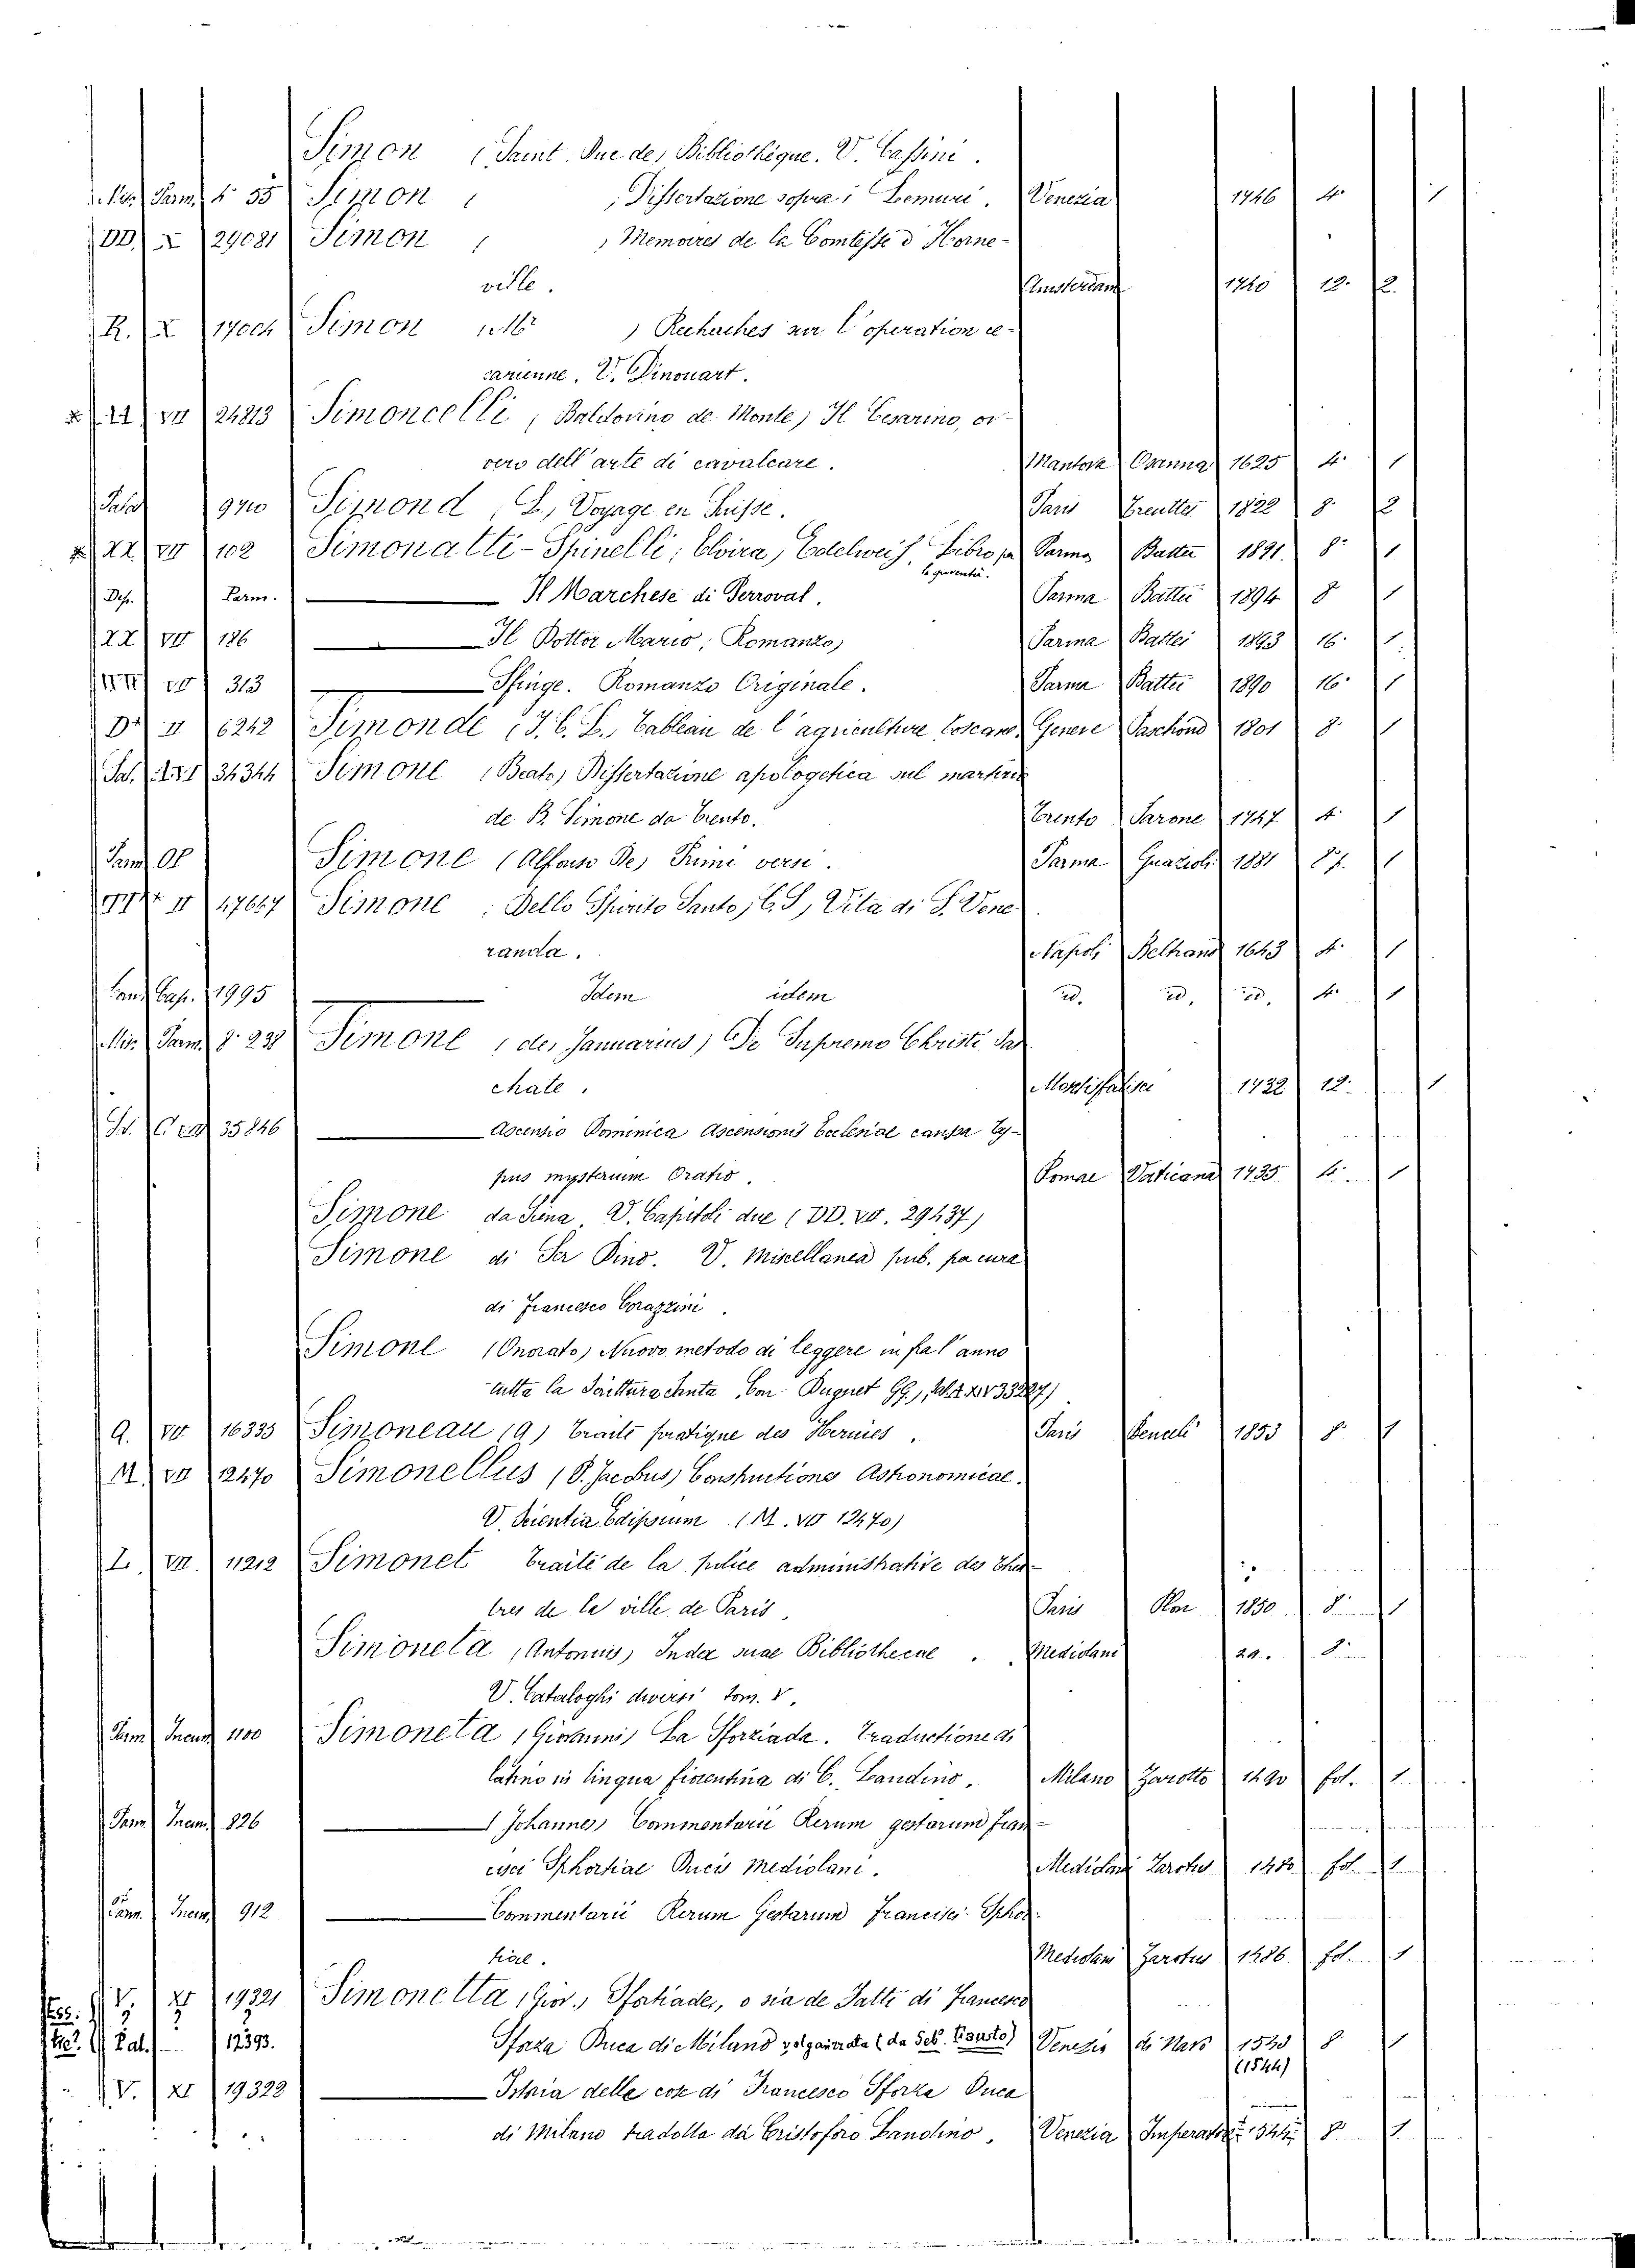 Simon (Saint. Duc de, Bibliothéque. V. Cassini.
Mis. Parm. 4º 55 Simon , Dissertazione sopra i Lemuri. Venezia 1746 4º 1
DD. X 29081 Simon , Memoires de la Comtesse d'Horne-
ville. Amsterdam 1740 12. 2
R. X Simon , Mr ) Recherches sur l'operation ce-
sarienne. V. Dinouart.
VII 24213 Simoncelli , Baldovino de Monte) Il Cesarino, ov-
vero dell'arte di cavalcare. Mantova Osanna 1625 4. 1
9710 Simond , L, Voyage en Suisse. Paris Treuttel 1822 8. 2
VII 102 Simonatti-Spinelli, Elvira, Edelweis, Libro p. Parma Battei 1891. 8º 1
la gioventù.
Dep. Parm. Il Marchese di Perroval. Parma Battei 1894 8 1
VII 186 Il Dottor Mario, Romanzo, Parma Battei 1893 16. 1
313 Sfinge. Romanzo Originale. Parma Battei 1890 16º 1
Dº II 6242 Simonde (J. C. L., Tableau de l'agriculture toscane Geneve Paschoud 1801 8º 1
Sal. 34344 Simone (Beato) Dissertazione apologetica sul martirio
de B. Simone da Trento. Trento Parone 1747 4. 1
Parm Simone (Alfonso De) Primi versi. Parma Grazioli 1881 8º 1
II 47667 Simone : Dello Spirito Santo, C.S, Vita di S. Vene
randa. Napoli Beltrano 1643 4. 1
Cap. 1995 Idem idem id. id, id, 4. 1
Mis. Parm. 8º 238 Simone , de, Januarius) De Supremo Christi Sar
chate. 1732 12. 1
35846 Ascensio Dominica Ascensionis Ecclesiae causa ty-
pus mysterium Oratio. Romae Vaticana 1735 4. 1
Simone da Siena. V. Capitoli due (DD. VII. 29437)
Simone di Ser Dino. V. Miscellanea pub. per cura
di Francesco Corazzini.
Simone (Onorato) Nuovo metodo di leggere in fra l'anno
tutta la Scrittura
Q. VII 16335 Simoneau (A) Traité pratique des Hernies. Paris 1853 8º 1
M. VII 12470 Simonellus (P. Jacobus) Constructiones Astronomicae.
V. Scientia Edipsium. (M. VII 12470)
L. VII. 11212 Simonet Traité de la police administrative des thea-
tres de la ville de Paris. Paris 1850 8. 1
Simoneta (Antonius) Index suae Bibliothecae. Mediolani 8.
V. Cataloghi diversi tom. V.
Parm Incun 1100 Simoneta (Giovanni) La Sforziada. Traductione di
latino in lingua fiorentina di C. Landino. Milano Zarotto 1490 fol. 1
Parm Incun 826 (Johannes) Commentarii Rerum gestarum Fran-
cisci Sphortiae Ducis Mediolani. Mediolani Zarotus 1480 fol. 1
Parm. Incun 912 Commentarii Rerum Gestarum Francisci Sphor
tiae. Mediolani Zarotus 1486 fol. 1
V. XI 19321 Simonetta (Gio.) Sfortiade, o sia de Fatti di Francesco
Pal. 12393. Sforza Duca di Milano volgarizzata (da Seb. Fausto) Venezia di Nass 1543 8 1
(1544)
V. XI 19322 Istoria delle cose di Francesco Sforza Duca
di Milano tradotta da Cristoforo Landino. Venezia Imperatore 1544 8 1